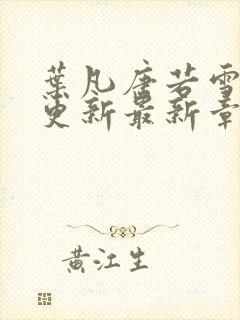 葉凡唐若雪
更新最新章
黄江生